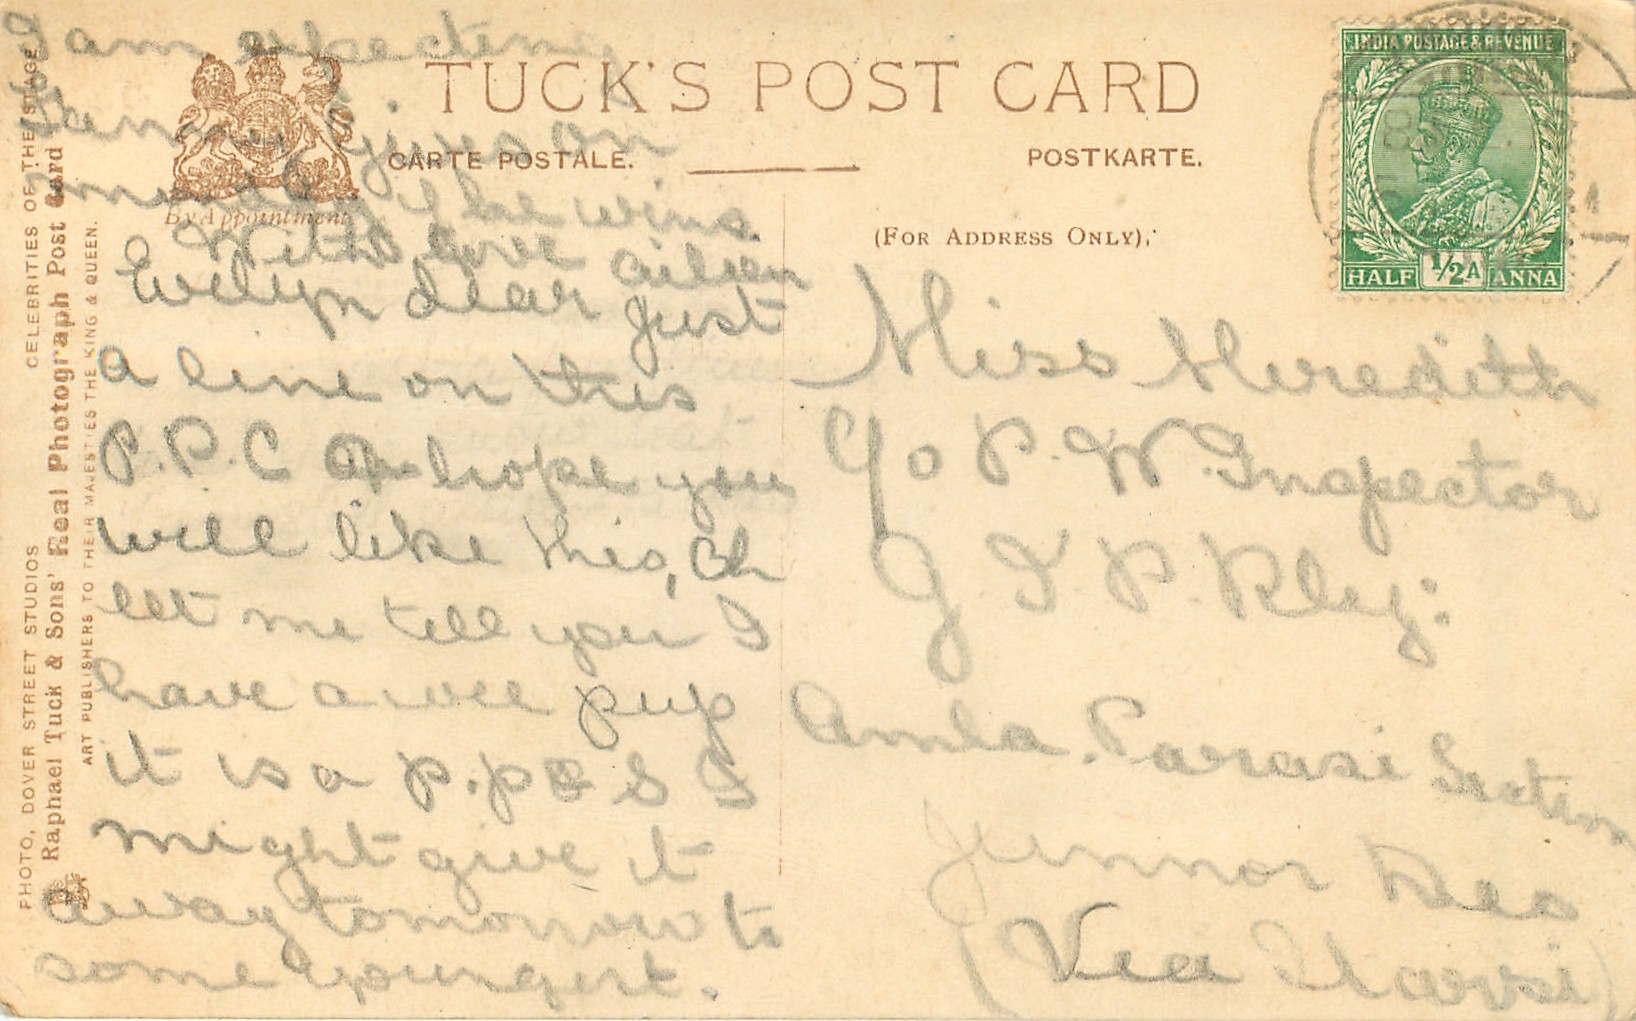 TUCK'S POST CARD
CARTE POSTALE.
POSTKARTE.
By Appointment
(FOR ADDRESS ONLY).
INDIA POSTAGE & REVENUE
HALF ½A ANNA
PHOTO, DOVER STREET STUDIOS CELEBRITIES OF THE STAGE
Raphael Tuck & Sons' Real Photograph Post Card
ART PUBLISHERS TO THEIR MAJESTIES THE KING & QUEEN.
I am expecting
on
he wins
With love Aileen
Evelyn dear just
a line on this
P.P.C hope you
will like this, Oh
let me tell you I
have a wee pup
it is a I
might give it
away tomorrow to
some youngert.
Miss Meredith
C/o P. W. Inspector
G. I P. Rly:
Amla. Parasi Section
Junnor Deo
(Via Itarsi)